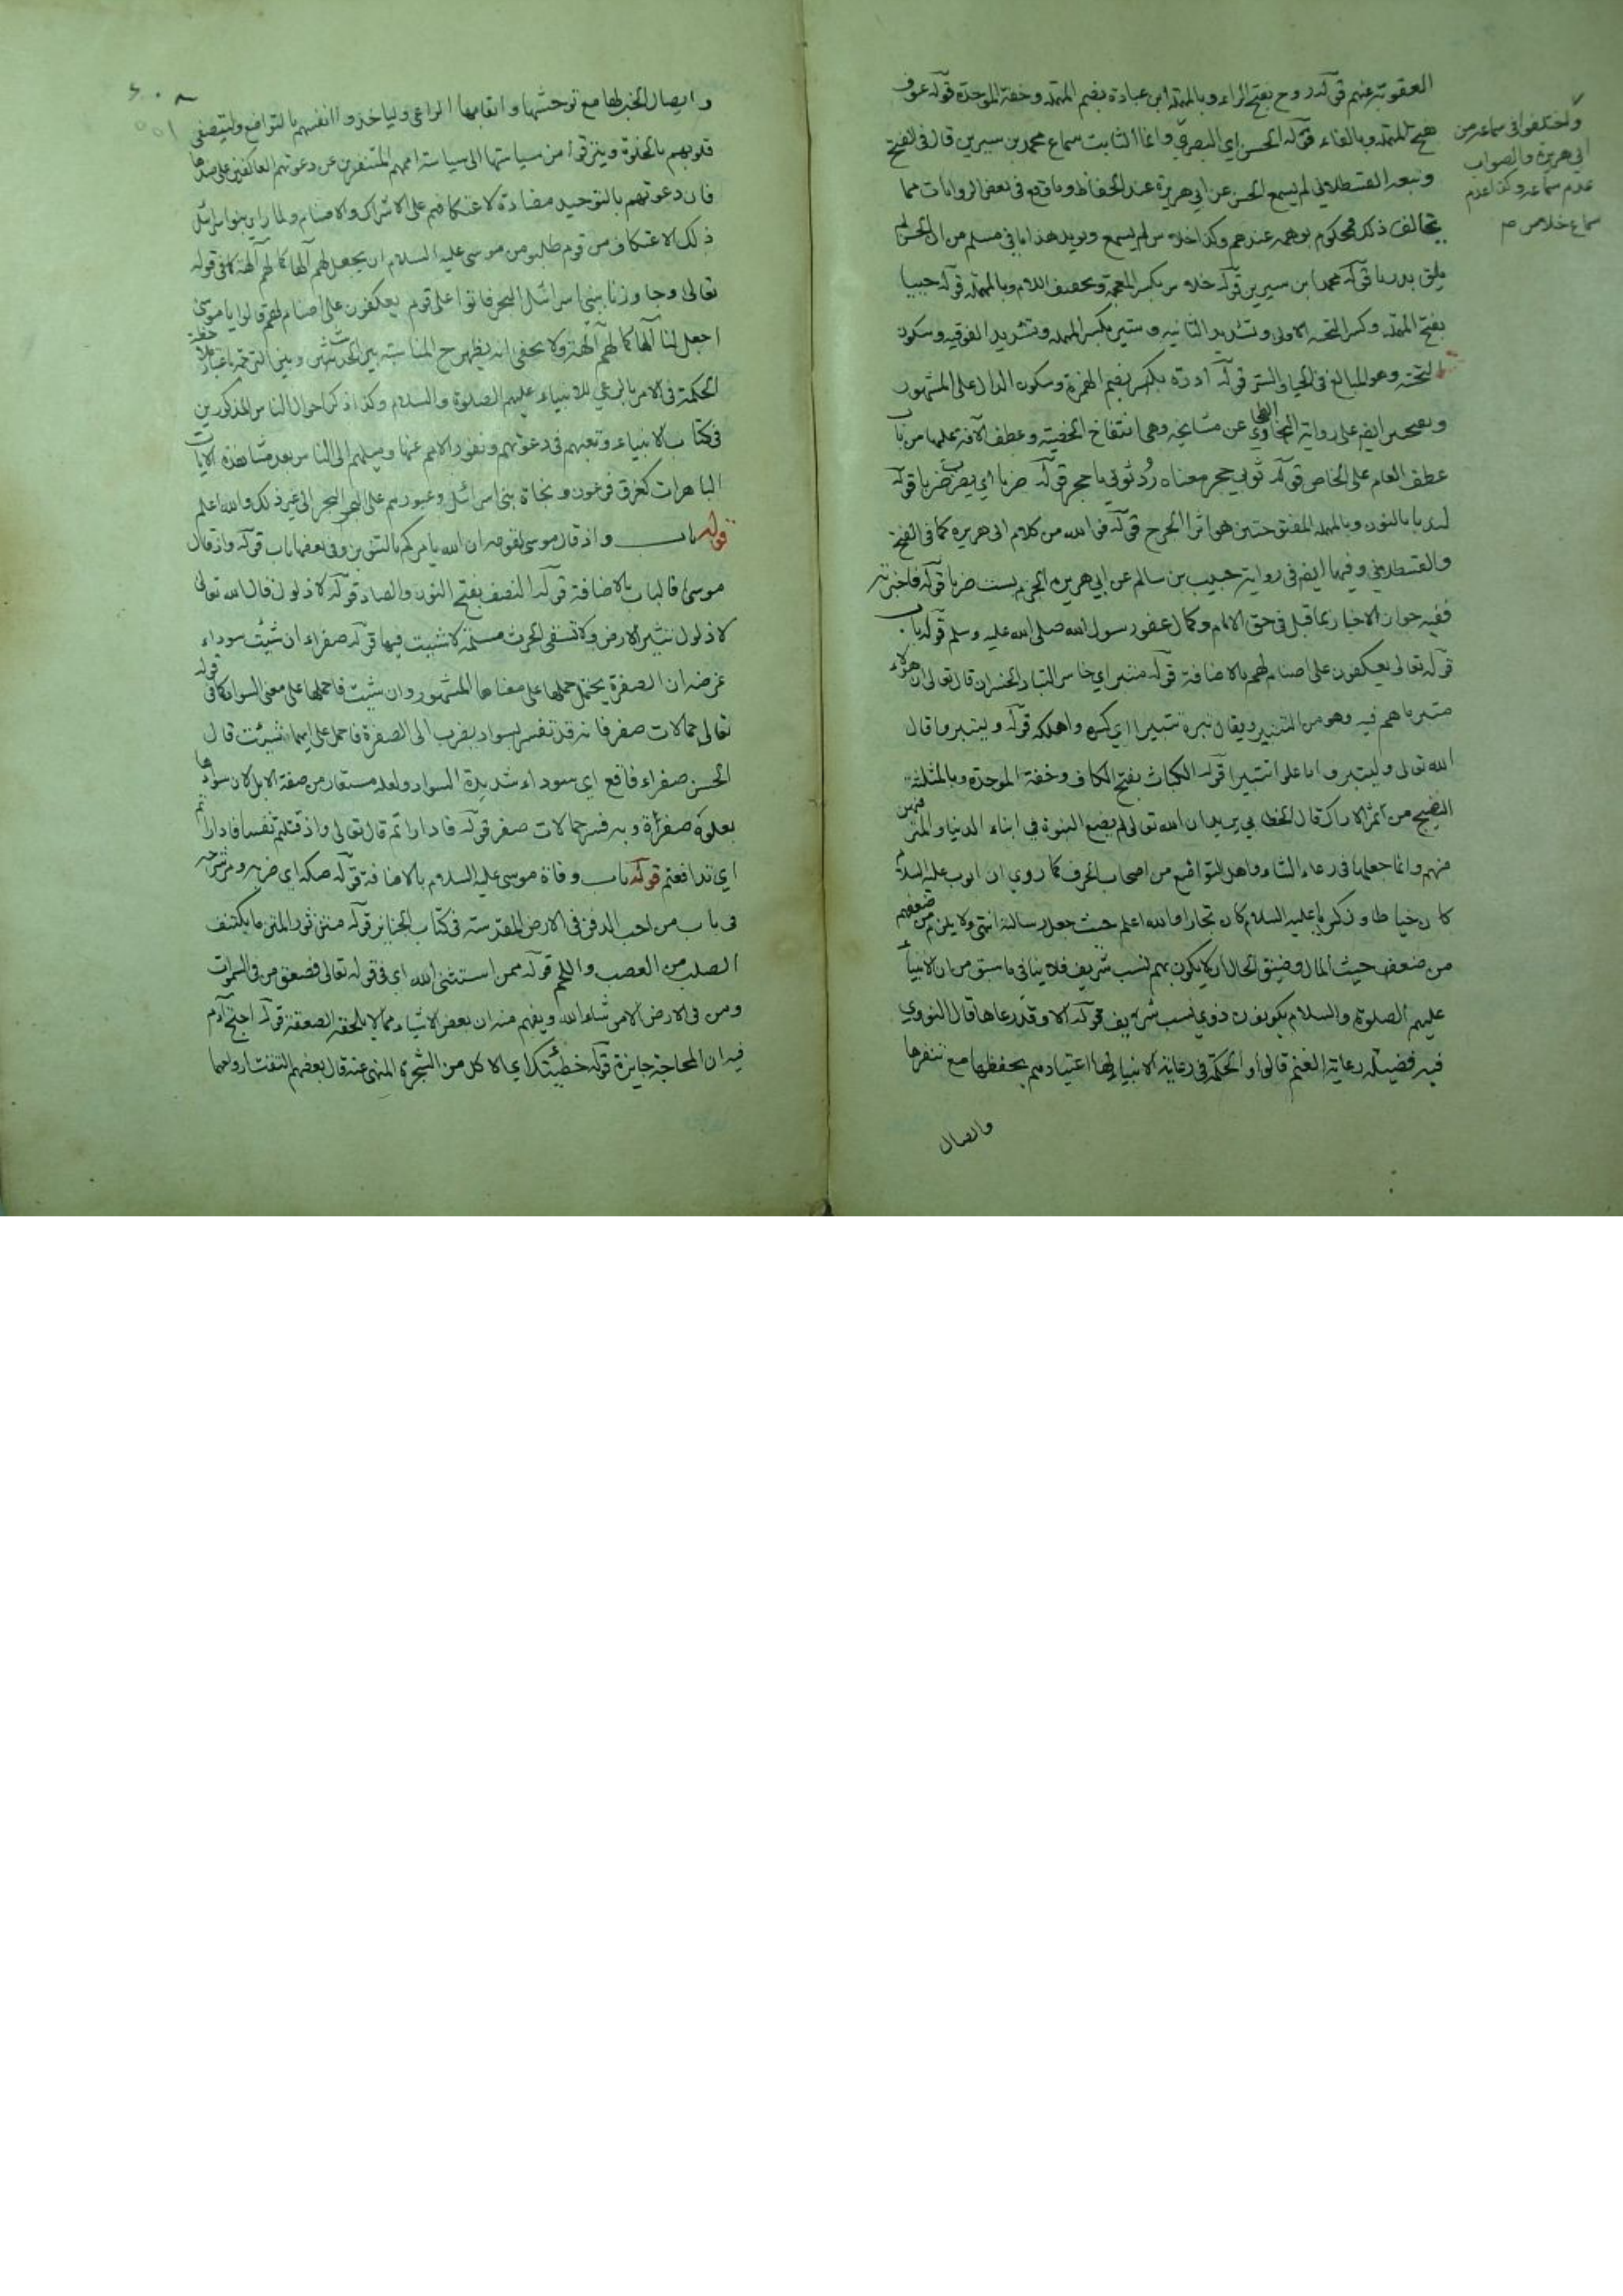 العقوبة عنهم قوله روح بفتح الراء وبالمهملة ابن عبادة بضم المهملة وخفة الموحدة قوله عوف
بفتح المهملة وبالفاء قوله الحسن اي البصري وانما الثابت سماع محمد بن سيرين قال في الفتح
وتبعه القسطلاني لم يسمع الحسن عن ابي هريرة عند الحفاظ وما وقع في بعض الروايات مما
يخالف ذلك فمحكوم بوهمه عندهم وكذا خلاس لم يسمع ويويد هذا ما في مسلم من ان الحسن لم
يلق بدريا قوله محمد ابن سيرين قوله خلاس بكسر المعجمة وبخفيف اللام وبالمهملة قوله حييا
بفتح المهملة وكسر التحتية الاولى وتشديد الثانية وستير بكسر المهملة وتشديد الفوقية وسكون
التحتية وهو المبالغ في الحيا والستر قوله ادرة بضم الهمزة وسكون الدال على المشهور
وبفتحتين ايضا على رواية الطحاوي عن مشايخه وهي انتفاخ الخصية وعطف الآفة عليها من باب
عطف العام على الخاص قوله ثوبي حجر معناه رد ثوبي يا حجر قوله ضربا اي يضرب ضربا قوله
لندبا بالنون وبالمهملة المفتوحتين هو اثر الجرح قوله فوالله من كلام ابي هريرة كما في الفتح
والقسطلاني وفيهما ايضا في رواية حبيب بن سالم عن ابي هريرة الجزم بست ضربا قوله فاخبرته
ففيه جواز الاخبار بما قيل في حق الامام وكمال عفو رسول الله صلى الله عليه وسلم قوله باب
قوله تعالى يعكفون على اصنام لهم بالاضافة قوله متبر اي خاسر التبار الخسران قال تعالى ان هؤلاء
متبر ما هم فيه وهو من التتبير ويقال تبره تتبيرا اي كسره واهلكه قوله وليتبروا قال
الله تعالى وليتبروا ما علوا تتبيرا قوله الكباث بفتح الكاف وخفة الموحدة وبالمثلثة
النضيج من ثمر الاراك قال الخطابي يريد ان الله تعالى لم يضع النبوة في ابناء الدنيا والمترفهين
منهم وانما جعلها في رعاء الشاء واهل التواضع من اصحاب الحرف كما روي ان ايوب عليه السلام
كان خياطا وزكريا عليه السلام كان نجارا والله اعلم حيث جعل رسالته انتهى ولا يلزم من ضعفهم
من ضعف حيث المال وضيق الحال ان لا يكون بهم نسب شريف فلا ينافي ما سبق من ان الانبياء
عليهم الصلوة والسلام يكونون ذوي نسب شريف قوله الا وقد رعاها قال النووي
فيه فضيلة رعاية الغنم قالوا والحكمة في رعاية الانبياء لها اعتيادهم بحفظها مع تنفرها
وايصال
واختلفوا في سماعه من
ابي هريرة والصواب
عدم سماعه وكذا عدم
سماع خلاس ص
وايصال الخير لها مع توحشها واتقابها الراعي ولياخذوا انفسهم بالتواضع ولتيصفى
قلوبهم بالخلوة ويترقوا من سياستها الى سياسة اممهم المتنفرين عن دعوتهم العاكفين على ضدها
فان دعوتهم بالتوحيد مضادة لاعتكافهم على الاشراك والاصنام ولما راى بنوا اسرائيل
ذلك الاعتكاف من قوم طلبوه من موسى عليه السلام ان يجعل لهم الها كما لهم آلهة كما في قوله
تعالى وجاوزنا ببني اسرائيل البحر فاتوا على قوم يعكفون على اصنام لهم قالوا يا موسى
اجعل لنا الها كما لهم آلهة ولا يخفى انه يظهر ح المناسبة بين الحديث وبين الترجمة باعتبار
الحكمة في الامر بالرعي للانبياء عليهم الصلوة والسلام وكذا ذكر احوال الناس المذكورين
في كتاب الانبياء وتعبهم في دعوتهم ونفور الامم عنها وميلهم الى الناس بعد مشاهدة الايات
الباهرات كغرق فرعون ونجاة بني اسرائيل وعبورهم على البحر الى غير ذلك والله اعلم
قوله باب واذ قال موسى لقومه ان الله يامركم بالتنوين وفي بعضها باب قوله واذ قال
موسى فالباب بالاضافة قوله النصف بفتح النون والصاد قوله لا ذلول قال الله تعالى
لا ذلول تثير الارض ولا تسقي الحرث مسلمة لا شية فيها قوله صفراء ان شئت سوداء
غرضه ان الصفرة يحتمل حملها على معناها المشهور وان شئت فاحملها على معنى السواد كما في قوله
تعالى جمالات صفر فانه قد تفسر بسواد يضرب الى الصفرة فاحمل على ايهما شئت قال
الحسن صفراء فاقع اي سوداء شديدة السواد ولعله مستعار من صفة الابل لان سوادها
يعلوه صفرة وبه فسر جمالات صفر قوله فادارأتم قال تعالى واذ قتلتم نفسا فادارأتم
اي تدافعتم قوله باب وفاة موسى عليه السلام بالاضافة قوله صكه اي ضربه ومر شرحه
في باب من احب الدفن في الارض المقدسة في كتاب الجنائز قوله متن ثور المتن ما يكتنف
الصلب من العصب واللحم قوله ممن استثنى الله اي في قوله تعالى فصعق من في السموات
ومن في الارض الا من شاء الله ويفهم منه ان بعض الاشياء مما لا يلحقه الصعقة قوله احتج آدم
فيه ان المحاجة جايزة قوله خطيئتك اي الاكل من الشجرة المنهي عنه قال بعضهم التقت ارواحهما